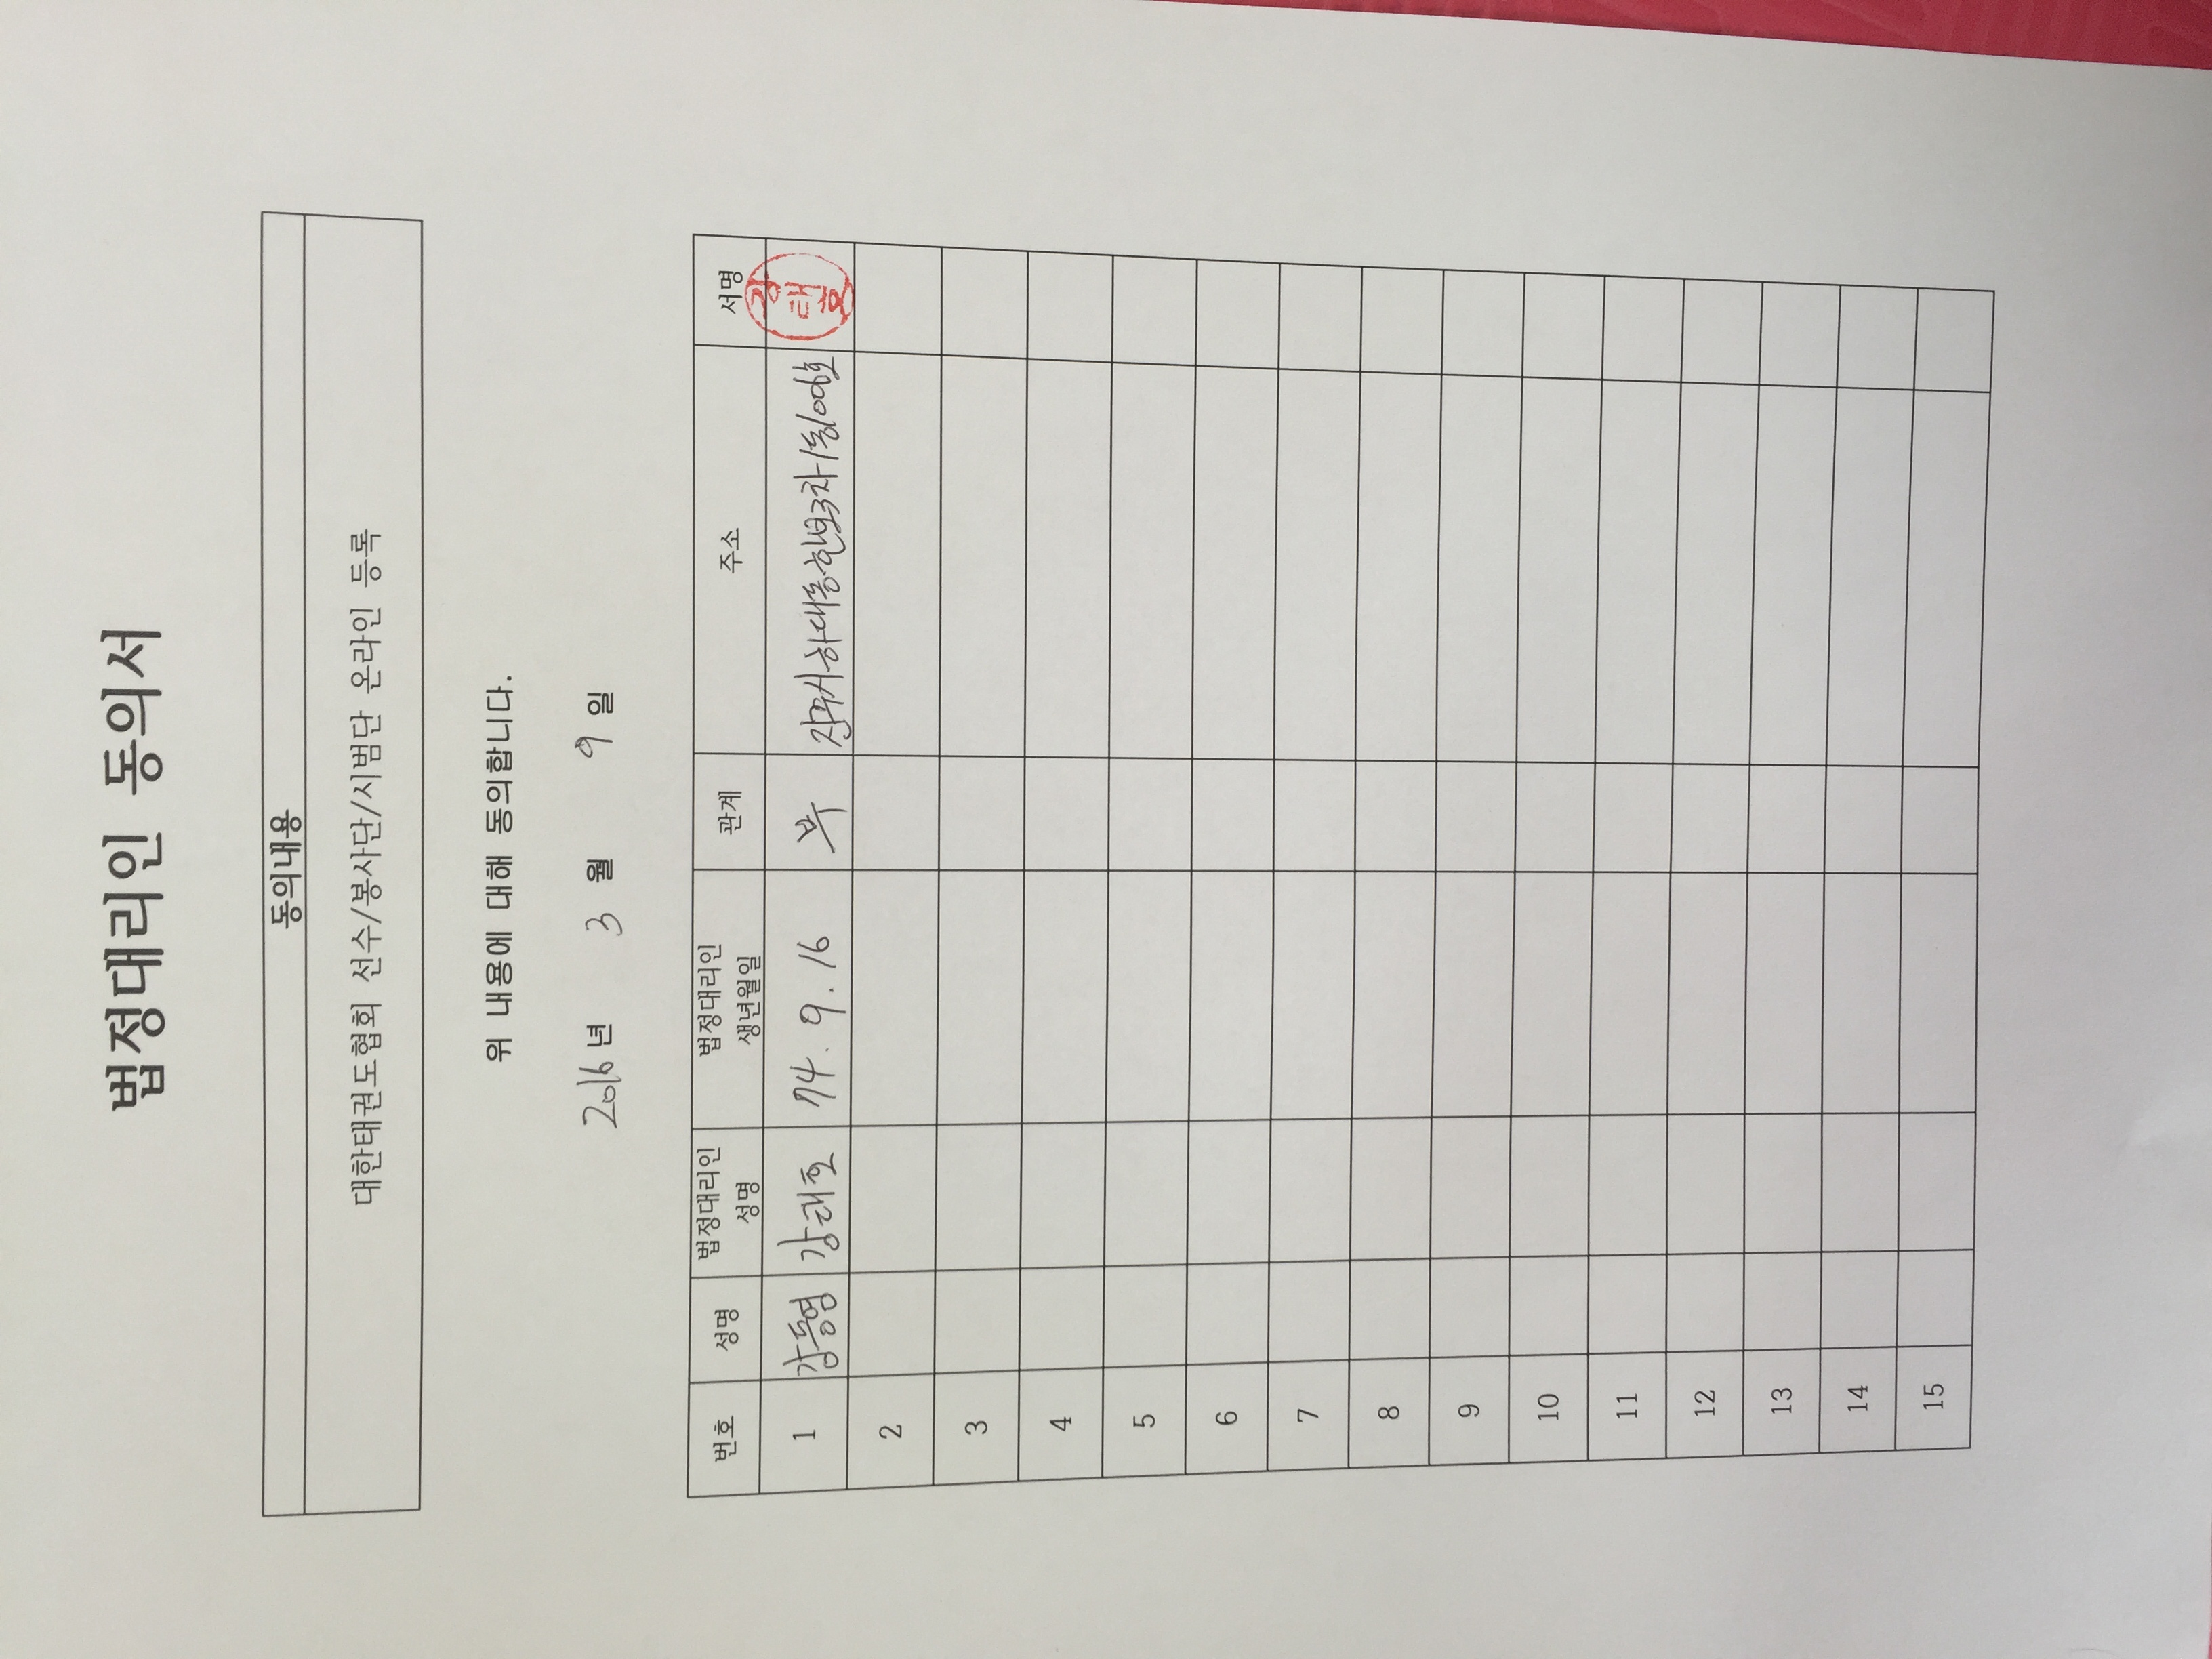 법정대리인 동의서
동의내용
대한태권도협회 선수/봉사단/시범단 온라인 등록
위 내용에 대해 동의합니다.
2016년 3월 9일
번호 성명 법정대리인 성명 법정대리인 생년월일 관계 주소 서명
1 강동형 강태호 74. 9. 16 부 진주시하대동한보3차1동1006호 강태호
2
3
4
5
6
7
8
9
10
11
12
13
14
15